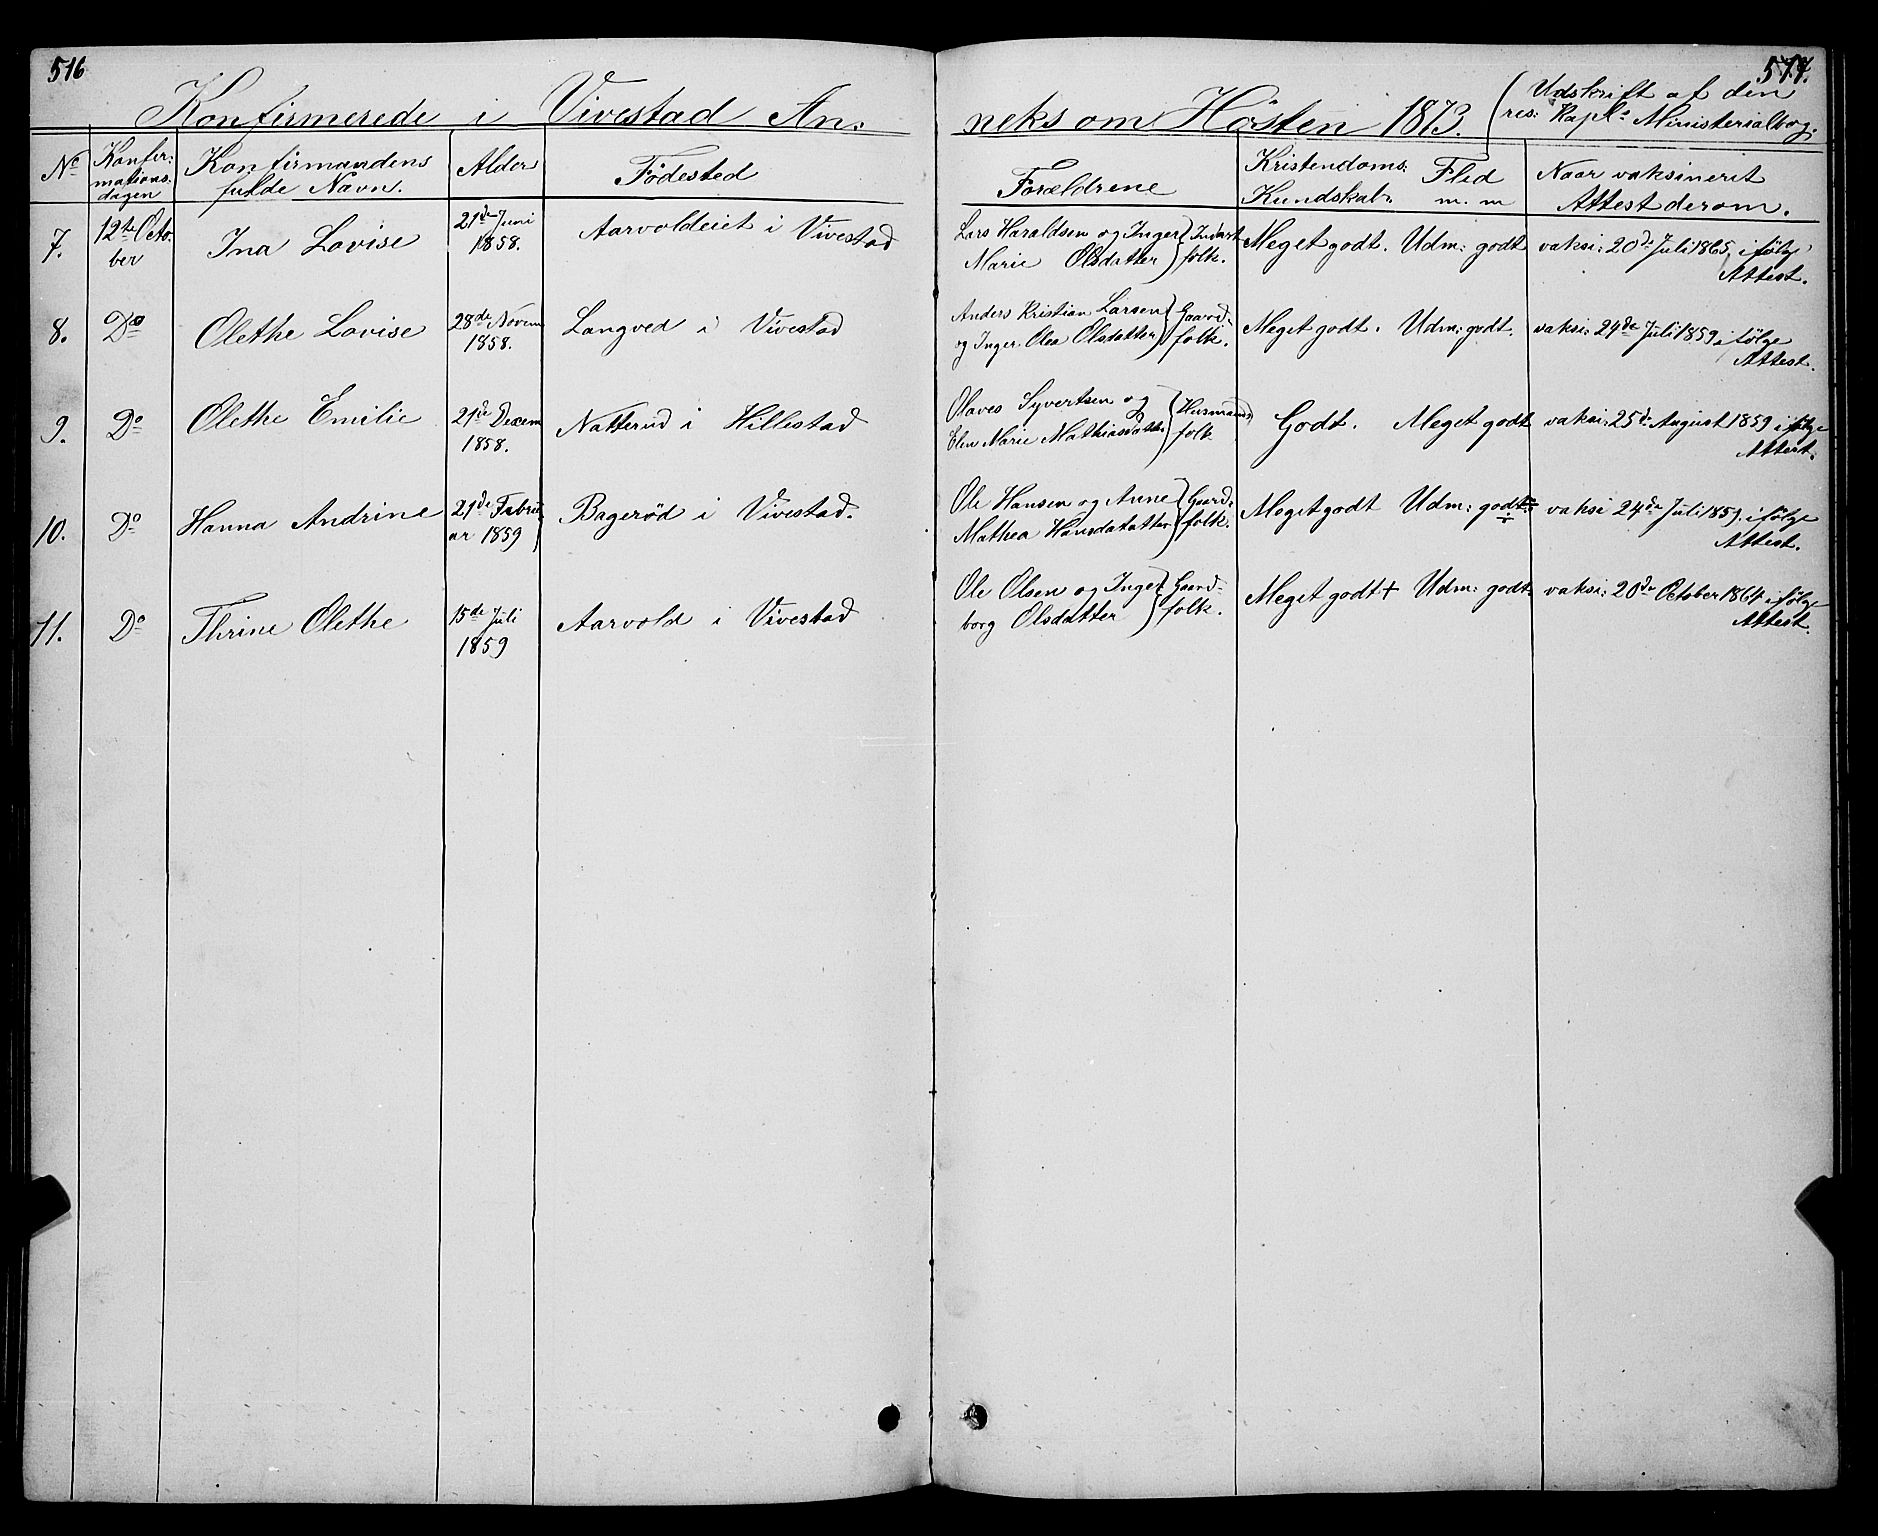 516
517.
Konfirmerede i Vivestad An:
neks om Hösten 1873.
(Udskrift af den
res: Kapl: Ministerialbog.
No
Konfir:
mations:
dagen
Konfirmandens
fulde Navn.
Alder
Födested
Forældrene
Kristendoms:
Kundskab:
Flid
m. m
Naar vaksinerit
Attest derom.
7.
12te Octo-
ber
Ina Lovise
21de Juni
1858.
Aarvoldeiet i Vivestad
Lars Haraldsen og Inger
Marie Olsdatter
folk.
Meget godt.
Udm: godt
vaksi: 20de Juli 1865, i fölge
Attest.
8.
Do
Olethe Lovise
28de Novem
1858.
Langved i Vivestad
Anders Kristian Larsen
og Inger Olea Olsdatter
Gaard-
folk.
Meget godt.
Udm: godt.
vaksi: 24de Juli 1859 i fölge
Attest.
9.
Do
Olethe Emilie
21de Decem
1858.
Natterud i Hillestad
Olaves Syvertsen og
Elen Marie Mathiasdatter
Husmands
folk
Godt.
Meget godt
vaksi: 25de August 1859 i fölge
Attest.
10.
Do
Hanna Andrine
21de Febru-
ar 1859
Bageröd i Vivestad.
Ole Hansen og Anne
Mathea Hansdatatter
Gaard-
folk.
Meget godt
Udm: godt÷
vaksi 24de Juli 1859. i fölge
Attest.
11.
Do
Thrine Olethe
15de Juli
1859
Aarvold i Vivestad
Ole Olsen og Inge-
borg Olsdatter
Gaard-
folk.
Meget godt +
Udm: godt.
vaksi: 20de October 1864 i fölge
Attest.